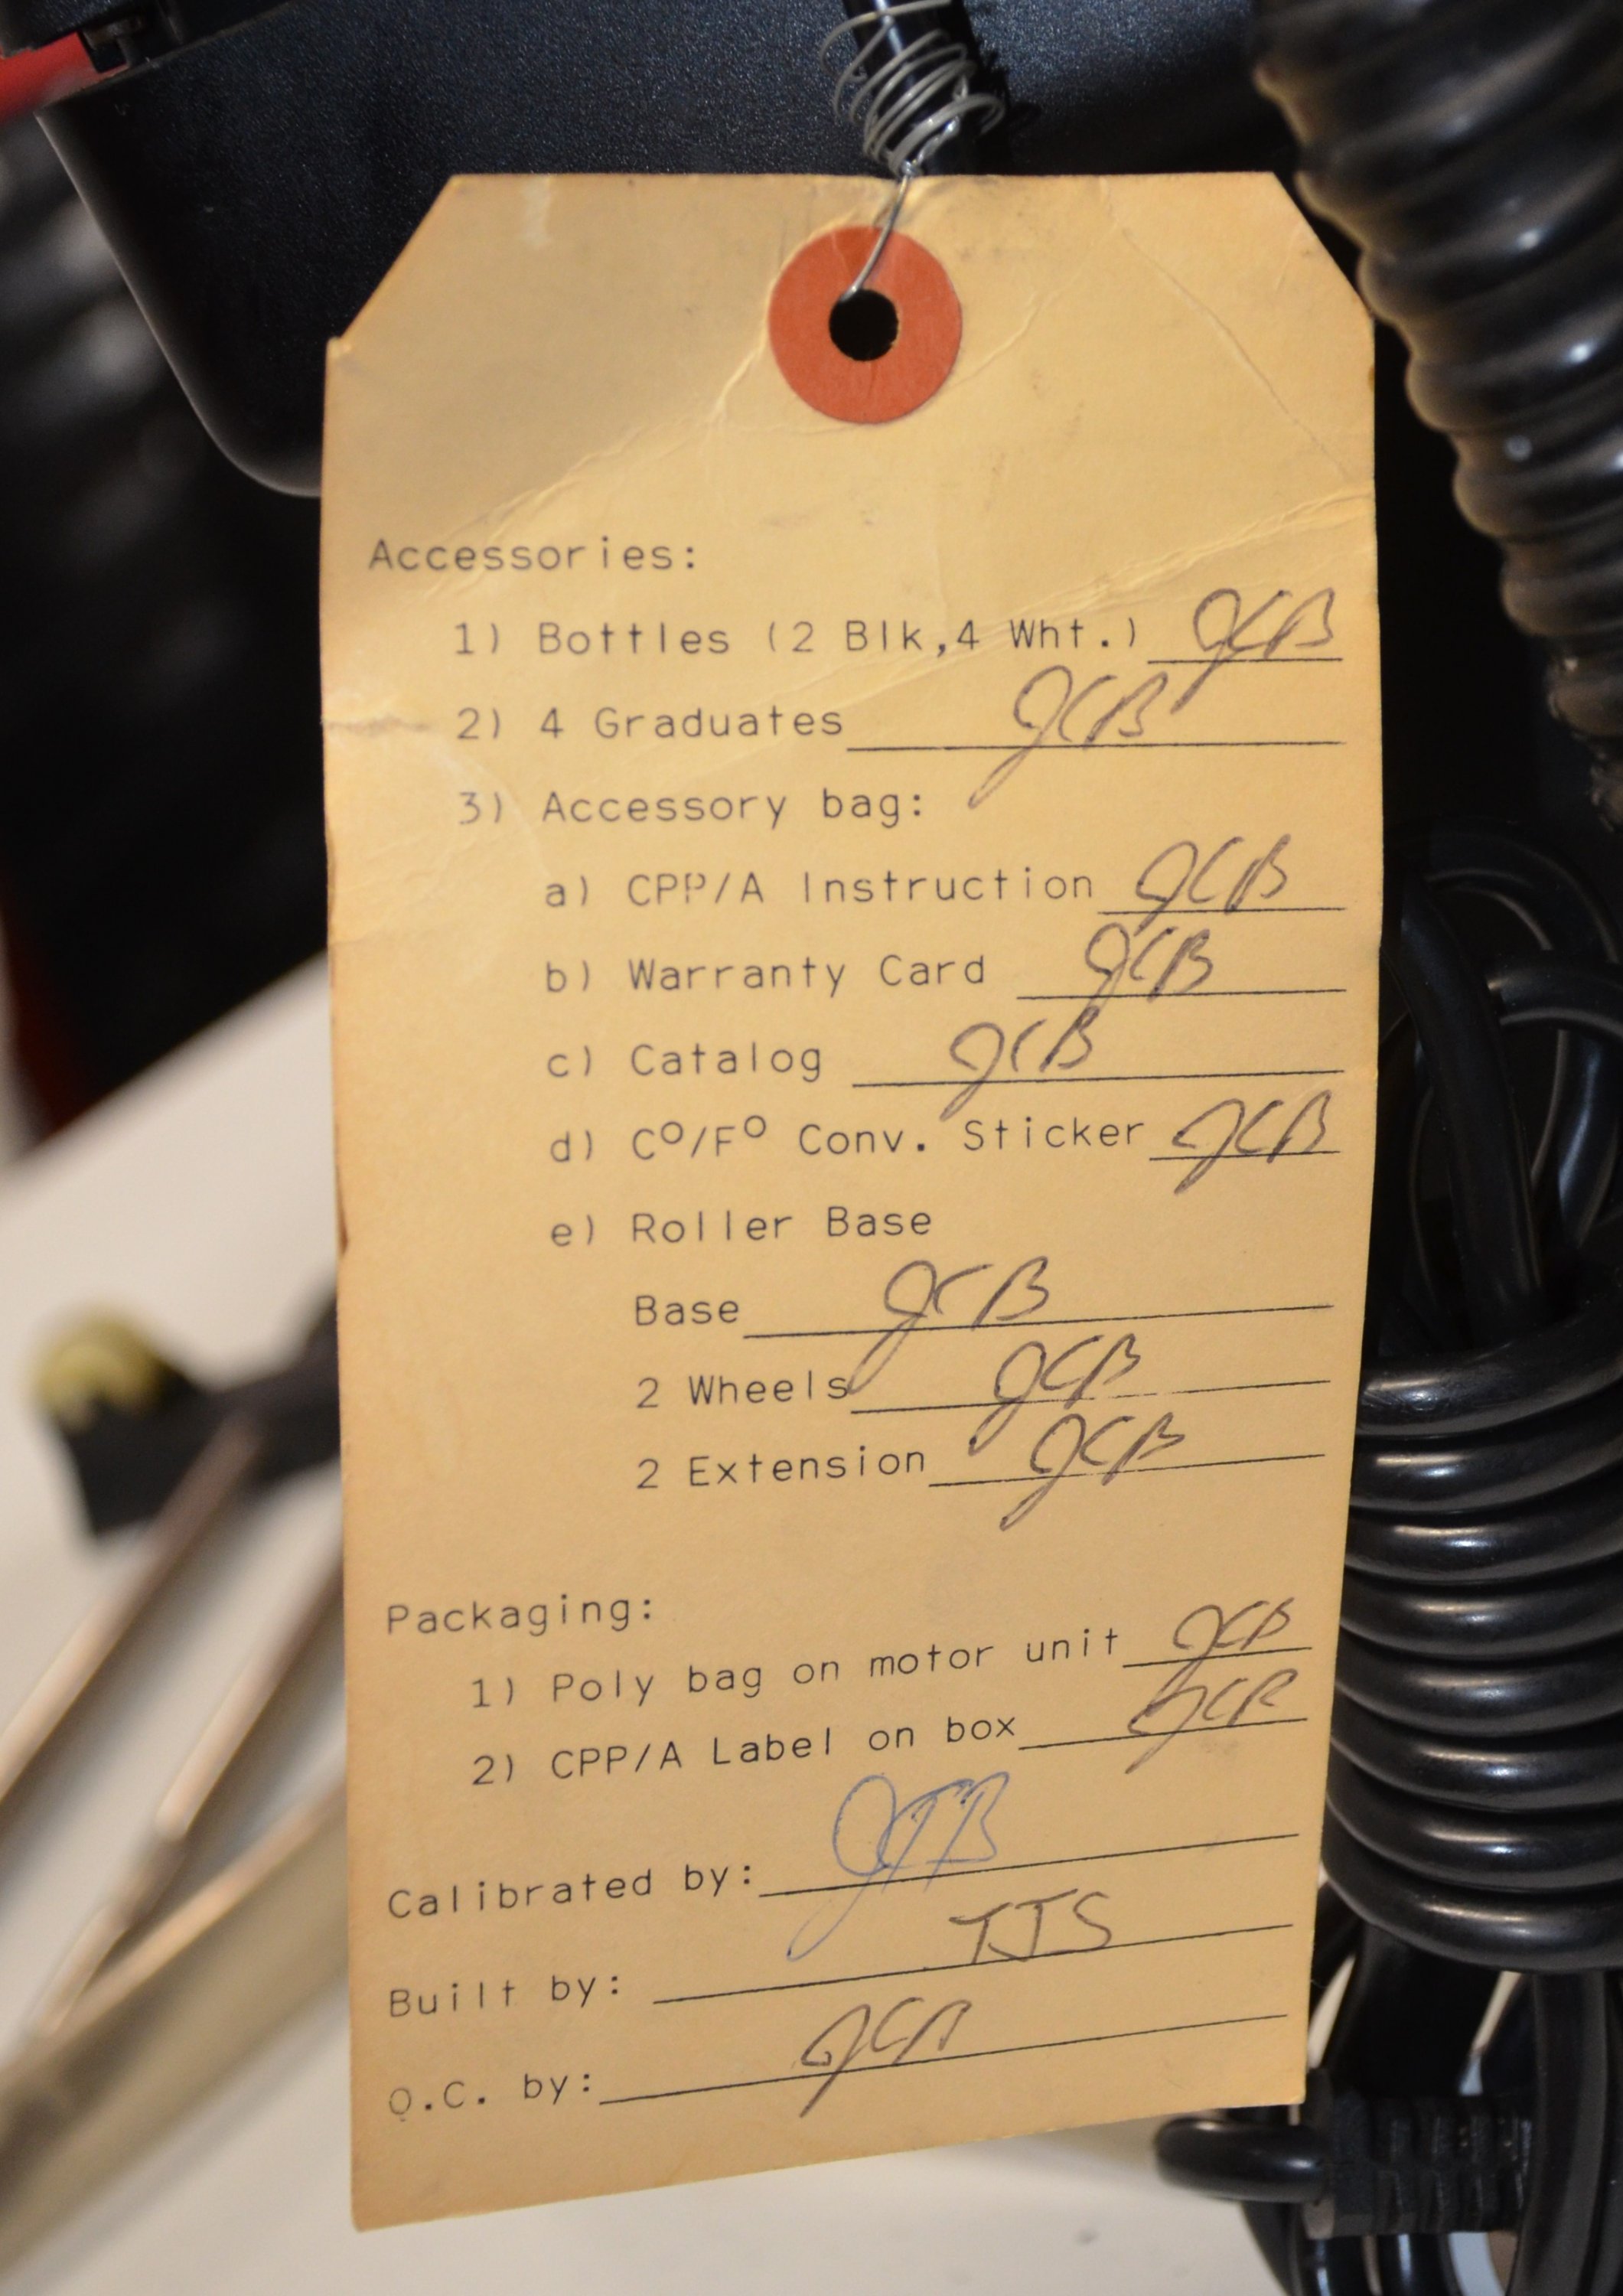 Accessories:
1) Bottles (2 Blk,4 Wht.) JCB
2) 4 Graduates JCB
3) Accessory bag:
a) CPP/A Instruction JCB
b) Warranty Card JCB
c) Catalog JCB
d) Cº/Fº Conv. Sticker JCB
e) Roller Base
Base JCB
2 Wheels JCB
2 Extension JCB
Packaging:
1) Poly bag on motor unit JCB
2) CPP/A Label on box JCB
Calibrated by: JTB
Built by: TJS
Q.C. by: JCB